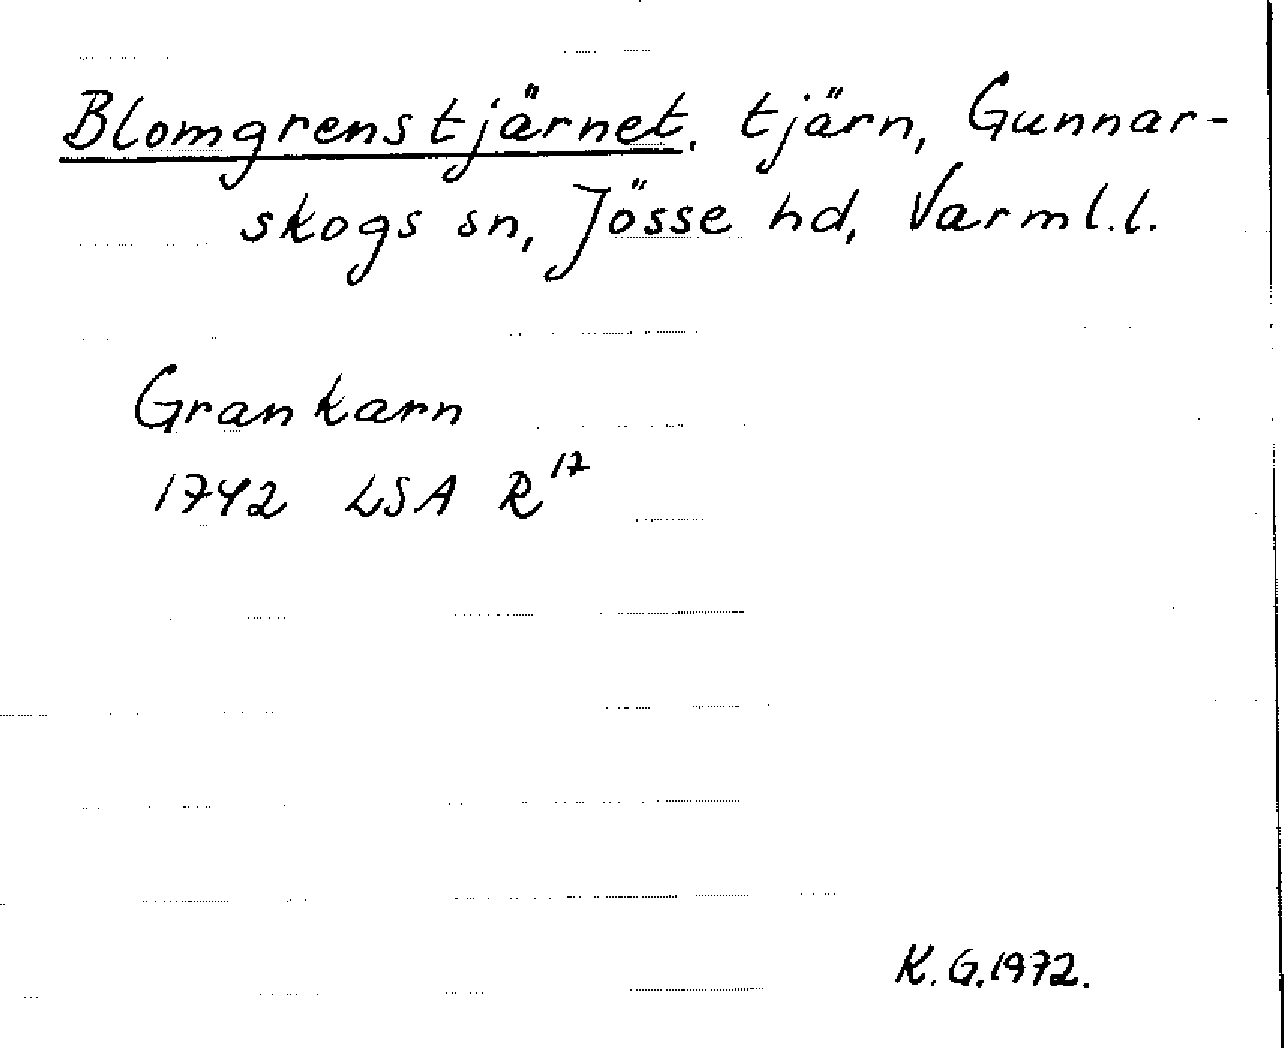 Blomgrenstjärnet, tjärn, Gunnar-
skogs sn, Jösse hd, Varml.l.
Grankarn
1742 LSA R17
K.G.1972.